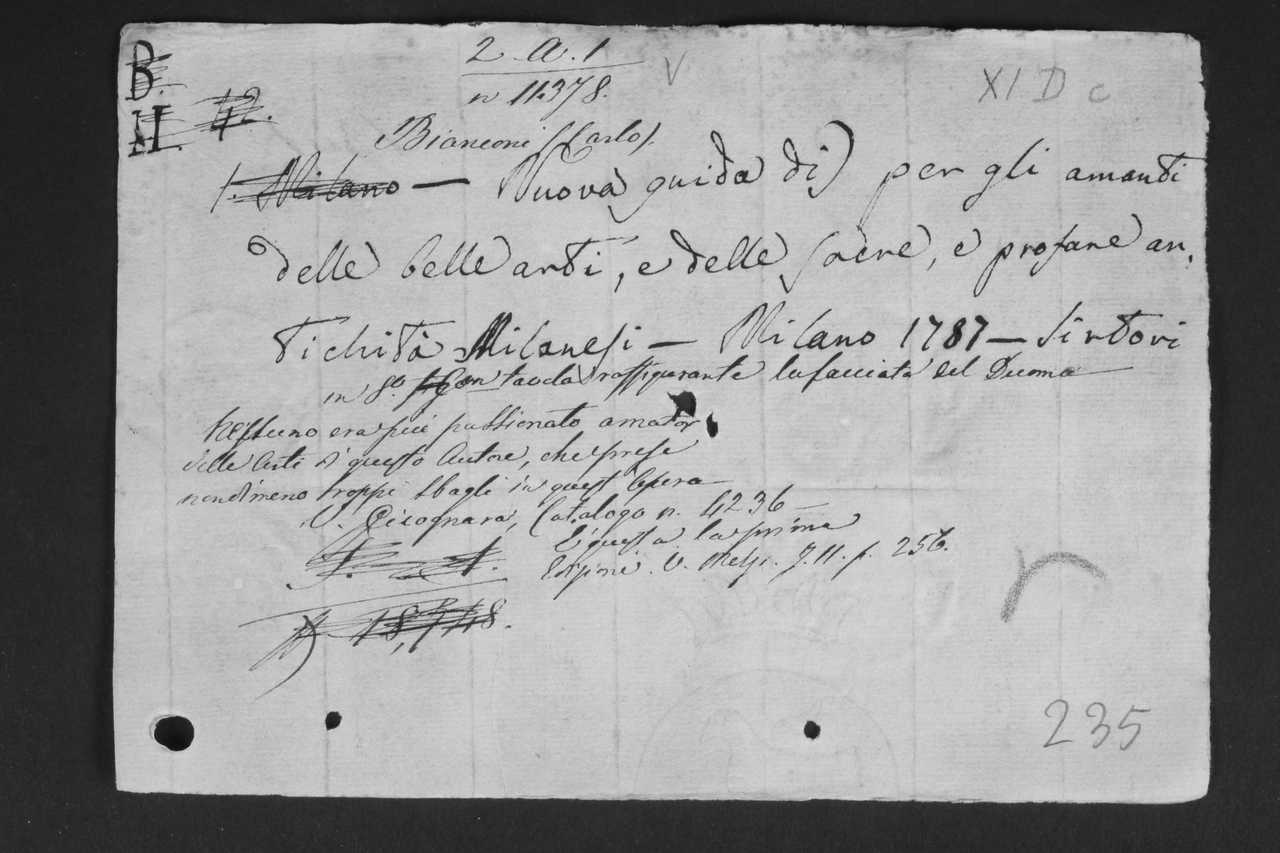 B.
H. 12.
2. A. 1
n 11378.
V
XI D c
Bianconi (Carlo).
1. Milano — Nuova guida di) per gli amanti
delle belle arti, e delle sacre, e profane an,
tichità Milanesi — Milano 1787 — Sirtori
in 8.º con tavola raffigurante la facciata del Duomo
Nessuno era più passionato amator
delle Arti di questo Autore, che prese
nondimeno troppi sbagli in quest'Opera
V. Cicognara, Catalogo n. 4236 —
È questa la prima
Edizione. V. Melzi. T. II. p. 256.
18,748.
r
235